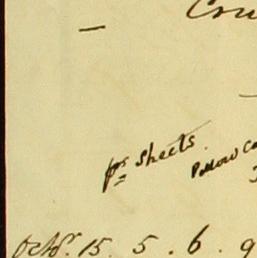 Cru
prs Sheets. Pillow Ca
Octbr. 15. 5. 6. 9